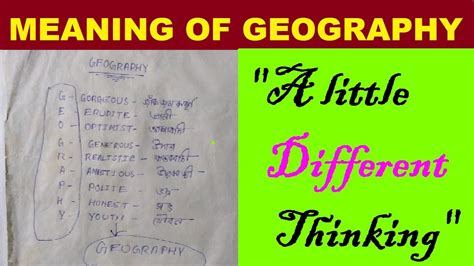 MEANING OF GEOGRAPHY
GEOGRAPHY
G - GORGEOUS -
E - ERUDITE - জ্ঞানী
O - OPTIMIST - আশাবাদী
G - GENEROUS - উদার
R - REALISTIC - বাস্তববাদী
A - AMBITIOUS -
P - POLITE - ভদ্র
H - HONEST - সৎ
Y - YOUTH - যৌবন
GEOGRAPHY
"A little
Different
Thinking"